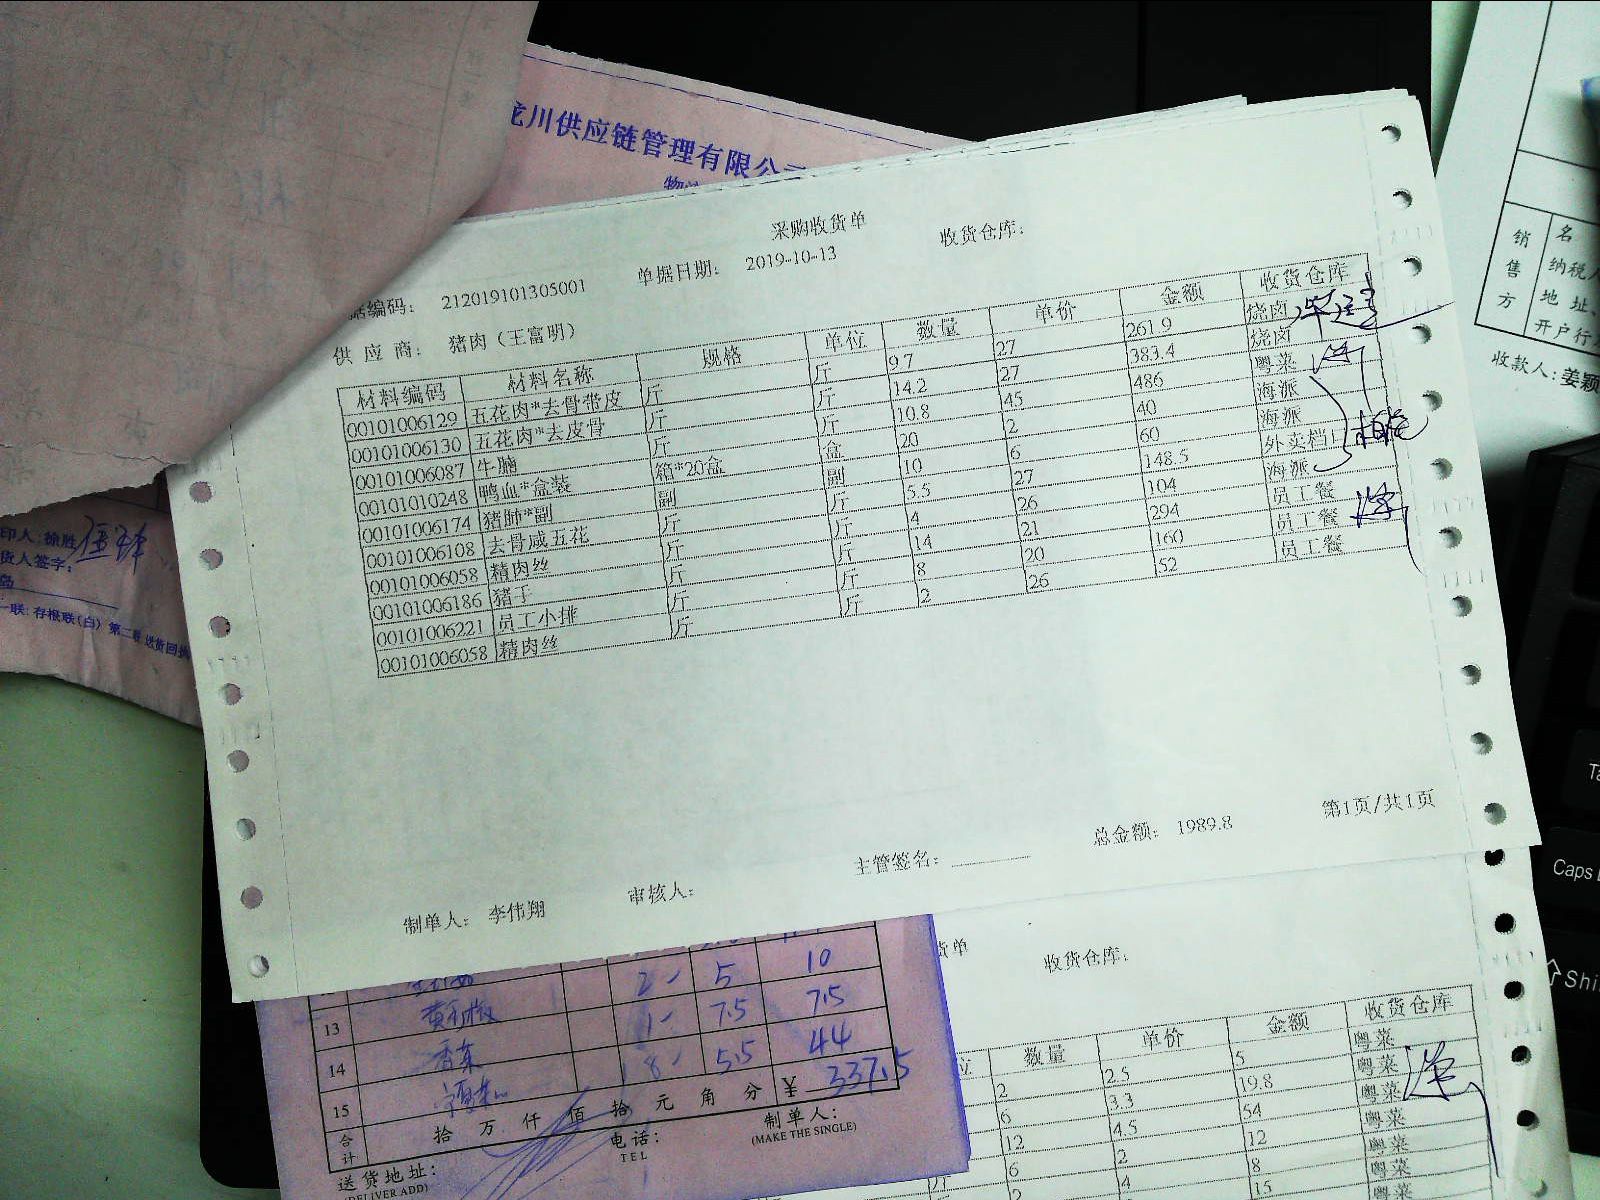 龙川供应链管理有限公司
采购收货单
收货仓库：
据编码： 212019101305001 单据日期： 2019-10-13
供 应 商： 猪肉（王富明）
材料编码 材料名称 规格 单位 数量 单价 金额 收货仓库
00101006129 五花肉*去骨带皮 斤 斤 9.7 27 261.9 烧卤
00101006130 五花肉*去皮骨 斤 斤 14.2 27 383.4 烧卤
00101006087 牛腩 斤 斤 10.8 45 486 粤菜
00101010248 鸭血*盒装 箱*20盒 盒 20 2 40 海派
00101006174 猪肺*副 副 副 10 6 60 海派
00101006108 去骨咸五花 斤 斤 5.5 27 148.5 外卖档口
00101006058 精肉丝 斤 斤 4 26 104 海派
00101006186 猪手 斤 斤 14 21 294 员工餐
00101006221 员工小排 斤 斤 8 20 160 员工餐
00101006058 精肉丝 斤 斤 2 26 52 员工餐
总金额： 1989.8 第1页/共1页
主管签名：
制单人： 李伟翔 审核人：
印人：徐胜
货人签字：
岛
一联：存根联（白） 第二联 送货回执
销售方
名
纳税人
地 址、
开户行
收款人：姜颖
2 5 10
13 1 7.5 7.5
14 香菜 8 5.5 44
15
合计 拾 万 仟 佰 拾 元 角 分 ￥ 337.5
送货地址：
(DELIVER ADD)
电话：
TEL
制单人：
(MAKE THE SINGLE)
货单
收货仓库：
位 数量 单价 金额 收货仓库
2 2.5 5 粤菜
6 3.3 19.8 粤菜
12 4.5 54 粤菜
6 2 12 粤菜
斤 2 4 8 粤菜
15 粤菜
Caps
Shi